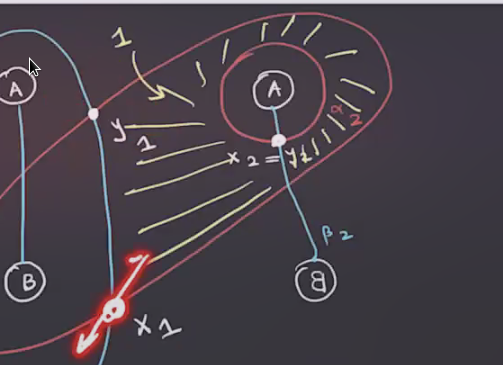 1
A
A
y1
α2
x2 = y2
β2
B
B
x1